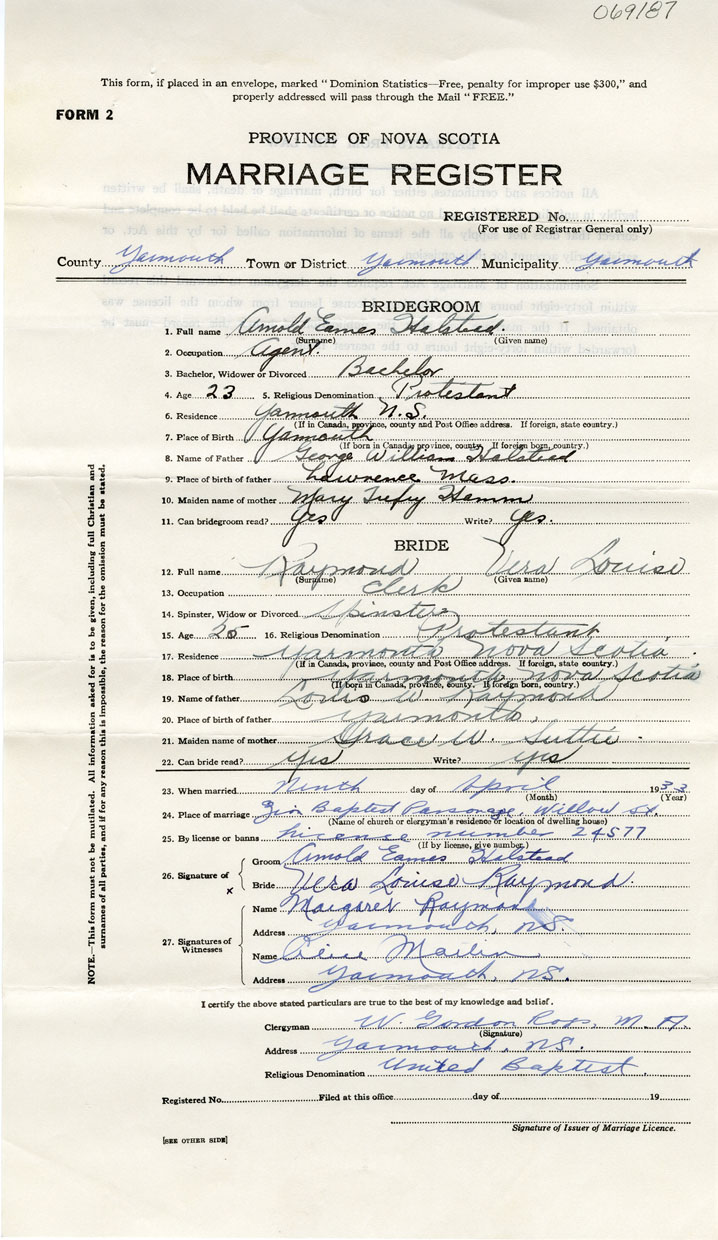 069187
This form, if placed in an envelope, marked "Dominion Statistics—Free, penalty for improper use $300," and
properly addressed will pass through the Mail "FREE."
FORM 2
PROVINCE OF NOVA SCOTIA
MARRIAGE REGISTER
REGISTERED No.
(For use of Registrar General only)
County Yarmouth Town or District Yarmouth Municipality Yarmouth
BRIDEGROOM
1. Full name Arnold Eames Halstead.
(Surname) (Given name)
2. Occupation Agent.
3. Bachelor, Widower or Divorced Bachelor
4. Age 23 5. Religious Denomination Protestant
6. Residence Yarmouth N.S.
(If in Canada, province, county and Post Office address. If foreign, state country.)
7. Place of Birth Yarmouth
(If born in Canada, province, county. If foreign born, country.)
8. Name of Father George William Halstead
9. Place of birth of father Lawrence Mass.
10. Maiden name of mother Mary Trefry Hamm
11. Can bridegroom read? Yes Write? Yes.
BRIDE
12. Full name Raymond Vera Louise
(Surname) (Given name)
13. Occupation Clerk
14. Spinster, Widow or Divorced Spinster
15. Age 25 16. Religious Denomination Protestant
17. Residence Yarmouth Nova Scotia.
(If in Canada, province, county and Post Office address. If foreign, state country.)
18. Place of birth Yarmouth Nova Scotia
(If born in Canada, province, county. If foreign born, country.)
19. Name of father Louis W. Raymond
20. Place of birth of father Yarmouth,
21. Maiden name of mother Grace W. Suttie.
22. Can bride read? yes Write? yes
23. When married Ninth day of April 1933
(Month) (Year)
24. Place of marriage Zion Baptist Parsonage, Willow St.
(Name of church or clergyman's residence or location of dwelling house)
25. By license or banns License number 24577
(If by license, give number.)
26. Signature of
Groom Arnold Eames Halstead
x Bride Vera Louise Raymond.
27. Signatures of Witnesses
Name Margaret Raymond
Address Yarmouth, N.S.
Name
Address Yarmouth, N.S.
I certify the above stated particulars are true to the best of my knowledge and belief.
Clergyman W. Gordon Ross, M.A.
(Signature)
Address Yarmouth, N.S.
Religious Denomination United Baptist.
Registered No. Filed at this office day of 19
Signature of Issuer of Marriage Licence.
[SEE OTHER SIDE]
NOTE.—This form must not be mutilated. All information asked for is to be given, including full Christian and
surnames of all parties, and if for any reason this is impossible, the reason for the omission must be stated.